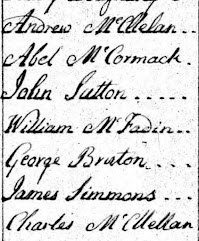 Andrew McClelan..
Abel McCormack.
John Sutton....
William McFadin..
George Bruton....
James Simmons...
Charles McClellan